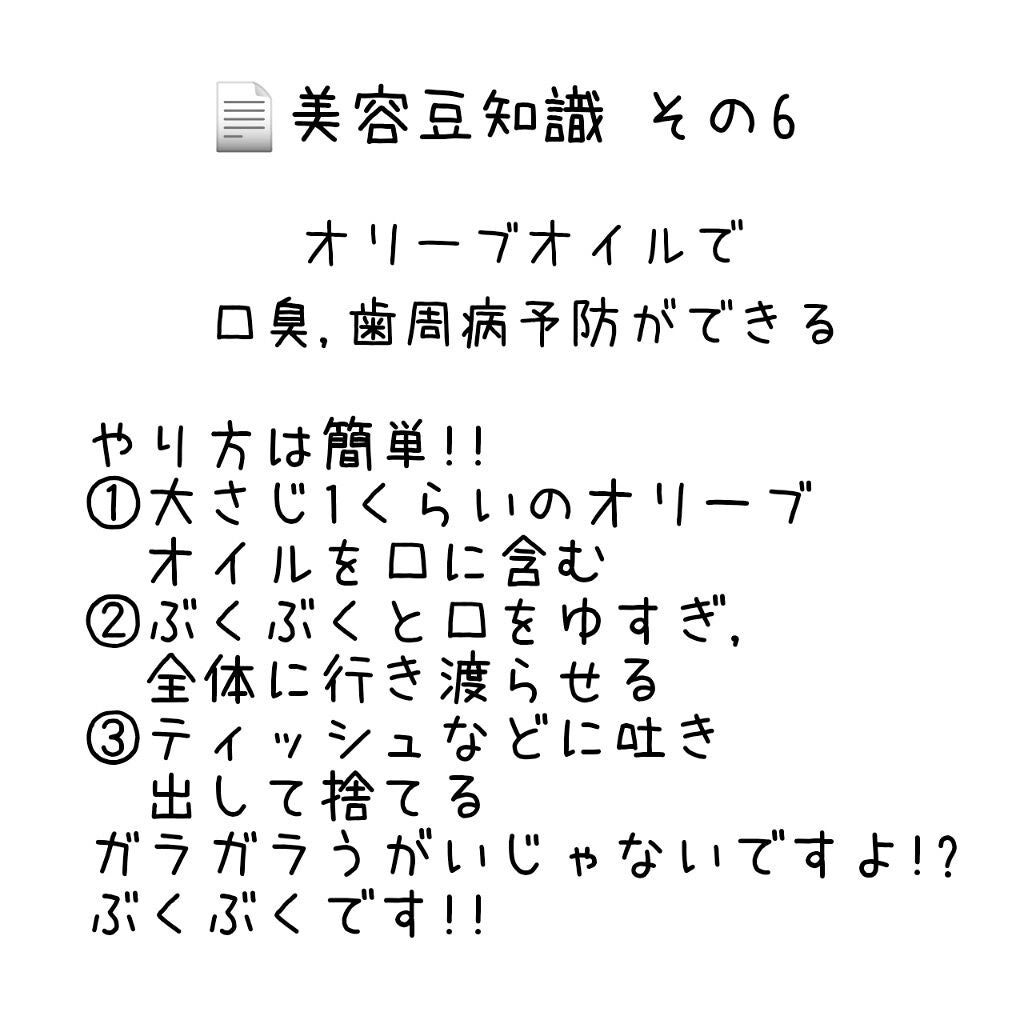 📄美容豆知識 その6
オリーブオイルで
口臭,歯周病予防ができる
やり方は簡単!!
①大さじ1くらいのオリーブ
オイルを口に含む
②ぶくぶくと口をゆすぎ,
全体に行き渡らせる
③ティッシュなどに吐き
出して捨てる
ガラガラうがいじゃないですよ!?
ぶくぶくです!!